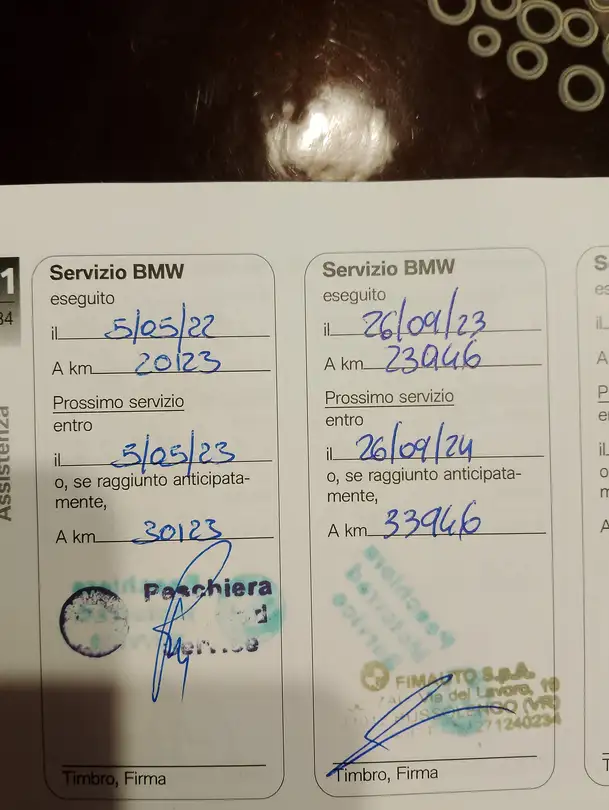 1
34
Assistenza
Servizio BMW
eseguito
il 5/05/22
A km 20123
Prossimo servizio
entro
il 5/05/23
o, se raggiunto anticipata-
mente,
A km 30123
Peschiera
Service
Timbro, Firma
Servizio BMW
eseguito
il 26/09/23
A km 23946
Prossimo servizio
entro
il 26/09/24
o, se raggiunto anticipata-
mente,
A km 33946
Peschiera
Service
FIMAUTO S.p.A.
Via del Lavoro, 19
BUSSOLENGO (VR)
271240234
Timbro, Firma